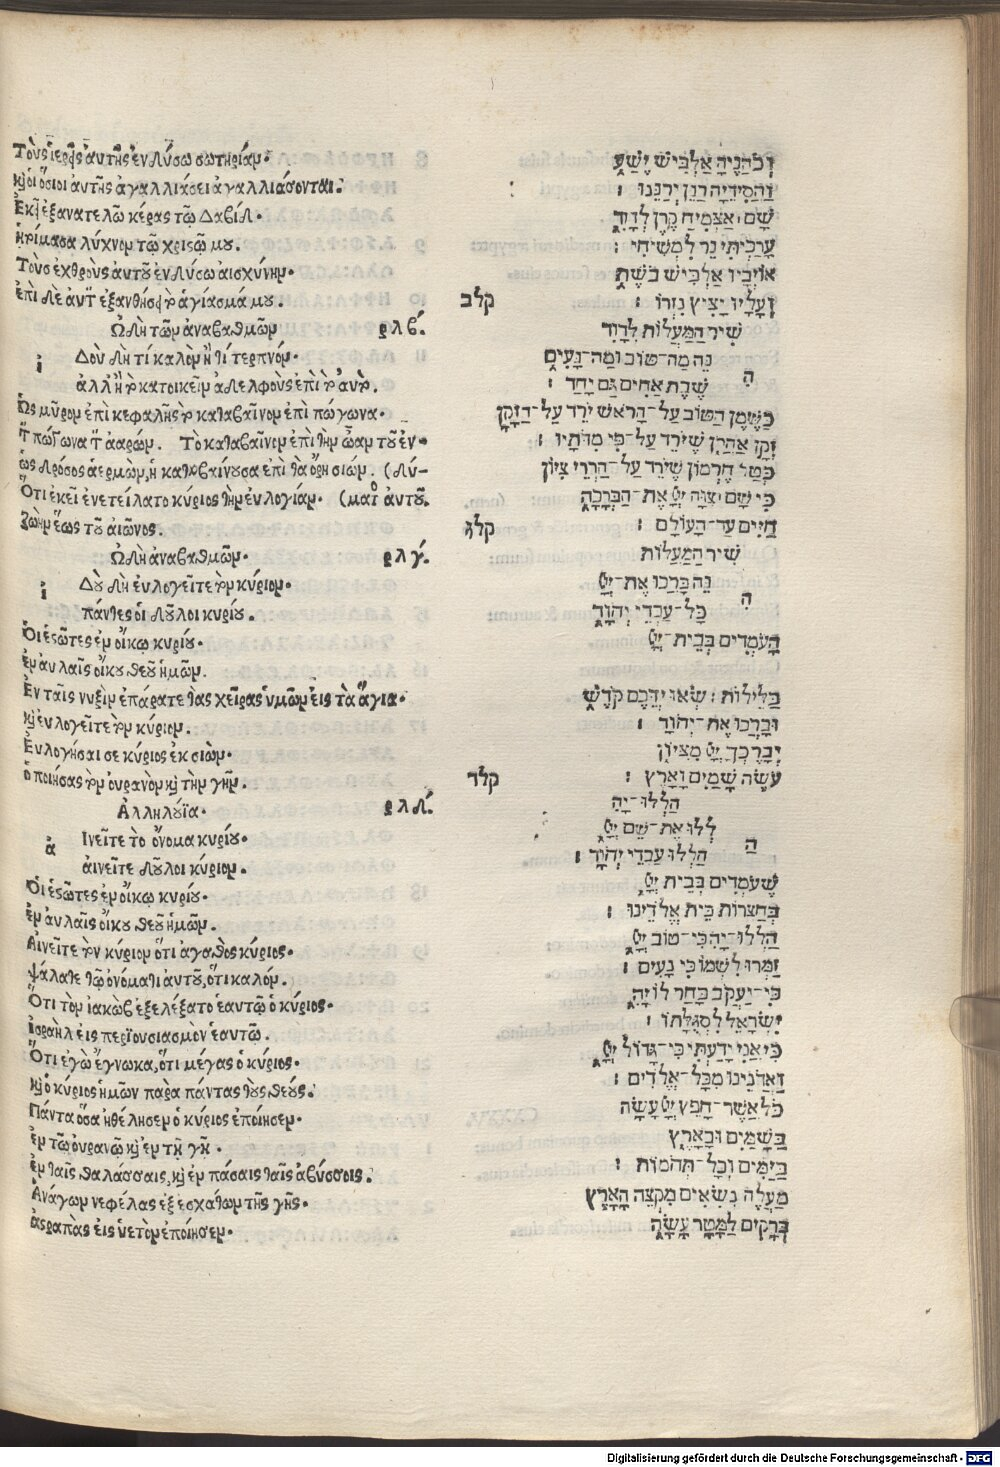 Τοὺς ἱερεῖς ἀυτῆς ἐνδύσω σωτηρίαμ·
κὶ ὁι ὅσιοι ἀυτῆς ἀγαλλιάσει ἀγαλλιάσονται:
Εκεῖ ἐξανατελῶ κέρας τῷ Δαβίδ·
ἡτίμασα λύχνομ τῷ χριστῷ μου.
Τοὺσ ἐχθροὺς ἀυτοῦ ἐνδύσω αἰσχύνημ·
ἐπὶ δὲ ἀυτὸν ἐξανθήσει τὸ ἁγίασμά μου.
Ωδὴ τῶμ ἀναβαθμῶμ ρλβ.
Δοὺ δὴ τί καλὸμ ἢ τί τερπνόμ·
ἀλλ' ἢ τὸ κατοικεῖμ ἀδελφοὺς ἐπὶ τὸ ἀυτὸ.
Ὡς μῦρομ ἐπὶ κεφαλῆς τὸ καταβαῖνομ ἐπὶ πώγωνα·
τὸμ πώγωνα τὸν ἀαρώμ. Τὸ καταβαῖνομ ἐπὶ τὴμ ὤαμ τοῦ ἐν-
ὡς δρόσος ἀερμὼμ, ἡ καταβαίνουσα ἐπὶ τὰ ὄρη σιώμ. (δύ-
Ὅτι ἐκεῖ ἐνετείλατο κύριος τὴμ ἐυλογίαμ· (ματος ἀυτοῦ.
ζωὴμ ἕως τοῦ αἰῶνος.
Ωδὴ ἀναβαθμῶμ· ρλγ.
Δοὺ δὴ ἐυλογεῖτε τὸμ κύριομ·
πάντες ὁι δοῦλοι κυρίου.
Ὁι ἑστῶτες ἐμ οἴκῳ κυρίου·
ἐμ ἀυλαῖς οἴκου θεοῦ ἡμῶμ.
Εν ταῖς νυξὶμ ἐπάρατε τὰς χεῖρας ὑμῶμ ἐις τὰ ἅγια·
κὶ ἐυλογεῖτε τὸμ κύριομ.
Ευλογήσαι σε κύριος ἐκ σιώμ·
ὁ ποιήσας τὸμ ὀυρανὸμ κὶ τὴμ γῆμ.
Αλληλούϊα· ρλδ.
Ινεῖτε τὸ ὄνομα κυρίου·
ἀινεῖτε δοῦλοι κύριομ.
Ὁι ἑστῶτες ἐμ οἴκῳ κυρίου·
ἐμ ἀυλαῖς οἴκου θεοῦ ἡμῶμ.
Αινεῖτε τὸν κύριομ ὅτι ἀγαθὸς κύριος·
ψάλατε τῷ ὀνόματι ἀυτοῦ, ὅτι καλόμ.
Ὅτι τὸμ ἰακὼβ ἐξελέξατο ἑαυτῷ ὁ κύριος·
ἰσραὴλ ἐις περϊουσιασμὸν ἑαυτῷ.
Ὅτι ἐγὼ ἔγνωκα, ὅτι μέγας ὁ κύριος·
κὶ ὁ κύριος ἡμῶν παρα πάντας τοὺς θεούς:
Πάντα ὅσα ἠθέλησεμ ὁ κύριος ἐποίησεμ·
ἐμ τῷ ὀυρανῷ κὶ ἐμ τῇ γῇ·
ἐμ ταῖς θαλάσσαις, κὶ ἐμ πάσαις ταῖς ἀβύσσοις:
Ανάγωμ νεφέλας ἐξ ἐσχάτωμ τῆς γῆς·
ἀστραπὰς ἐις ὑετὸμ ἐποίησεμ·
וְכֹהֲנֶיהָ אַלְבִּישׁ יֶשַׁע
וַחֲסִידֶיהָ רַנֵּן יְרַנֵּנוּ׃
שָׁם אַצְמִיחַ קֶרֶן לְדָוִד
עָרַכְתִּי נֵר לִמְשִׁיחִי׃
אוֹיְבָיו אַלְבִּישׁ בֹּשֶׁת
וְעָלָיו יָצִיץ נִזְרוֹ׃ קלב
שִׁיר הַמַּעֲלוֹת לְדָוִד
נֵּה מַה־טּוֹב וּמַה־נָּעִים
ה שֶׁבֶת אַחִים גַּם יָחַד׃
כַּשֶּׁמֶן הַטּוֹב עַל־הָרֹאשׁ יֹרֵד עַל־הַזָּקָן
זְקַן אַהֲרֹן שֶׁיֹּרֵד עַל־פִּי מִדֹּתָיו׃
כְּטַל חֶרְמוֹן שֶׁיֹּרֵד עַל־הַרְרֵי צִיּוֹן
כִּי שָׁם צִוָּה יְיָ אֶת־הַבְּרָכָה
חַיִּים עַד־הָעוֹלָם׃ קלג
שִׁיר הַמַּעֲלוֹת
נֵּה בָּרֲכוּ אֶת־יְיָ
ה כָּל־עַבְדֵי יְהוָה
הָעֹמְדִים בְּבֵית־יְיָ
בַּלֵּילוֹת׃ שְׂאוּ יְדֵכֶם קֹדֶשׁ
וּבָרֲכוּ אֶת־יְהוָֹה׃
יְבָרֶכְךָ יְיָ מִצִּיּוֹן
עֹשֵׂה שָׁמַיִם וָאָרֶץ׃ קלד
הַלְלוּ־יָהּ
לְלוּ אֶת־שֵׁם יְיָ
ה הַלְלוּ עַבְדֵי יְהוָֹה׃
שֶׁעֹמְדִים בְּבֵית יְיָ
בְּחַצְרוֹת בֵּית אֱלֹהֵינוּ׃
הַלְלוּ־יָהּ כִּי־טוֹב יְיָ
זַמְּרוּ לִשְׁמוֹ כִּי נָעִים׃
כִּי־יַעֲקֹב בָּחַר לוֹ יָהּ
יִשְׂרָאֵל לִסְגֻלָּתוֹ׃
כִּי אֲנִי יָדַעְתִּי כִּי־גָדוֹל יְיָ
וַאֲדֹנֵינוּ מִכָּל־אֱלֹהִים׃
כֹּל אֲשֶׁר־חָפֵץ יְיָ עָשָׂה
בַּשָּׁמַיִם וּבָאָרֶץ
בַּיַּמִּים וְכָל־תְּהֹמוֹת׃
מַעֲלֶה נְשִׂאִים מִקְצֵה הָאָרֶץ
בְּרָקִים לַמָּטָר עָשָׂה
Digitalisierung gefördert durch die Deutsche Forschungsgemeinschaft - DFG